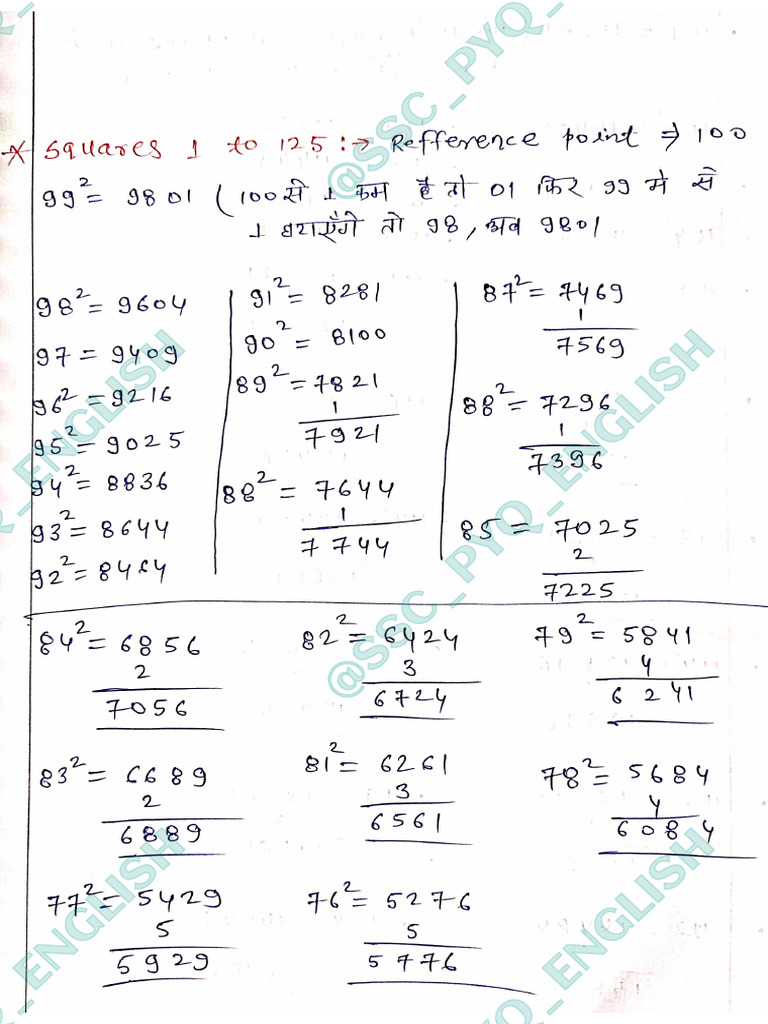 * Squares 1 to 125 :→ Refference point ⇒ 100
99² = 9801 (100 से 1 कम है तो 01 फिर 99 मे से
1 घटाएँगे तो 98, अब 9801
98² = 9604
97 = 9409
96² = 9216
95² = 9025
94² = 8836
93² = 8644
92² = 8464
91² = 8281
90² = 8100
89² = 7821
1
7921
88² = 7644
1
7744
87² = 7469
1
7569
88² = 7296
1
7396
85 = 7025
2
7225
84² = 6856
2
7056
82² = 6424
3
6724
79² = 5841
4
6241
83² = 6689
2
6889
81² = 6261
3
6561
78² = 5684
4
6084
77² = 5429
5
5929
76² = 5276
5
5776
@SSC_PYQ_ENGLISH
@SSC_PYQ_ENGLISH